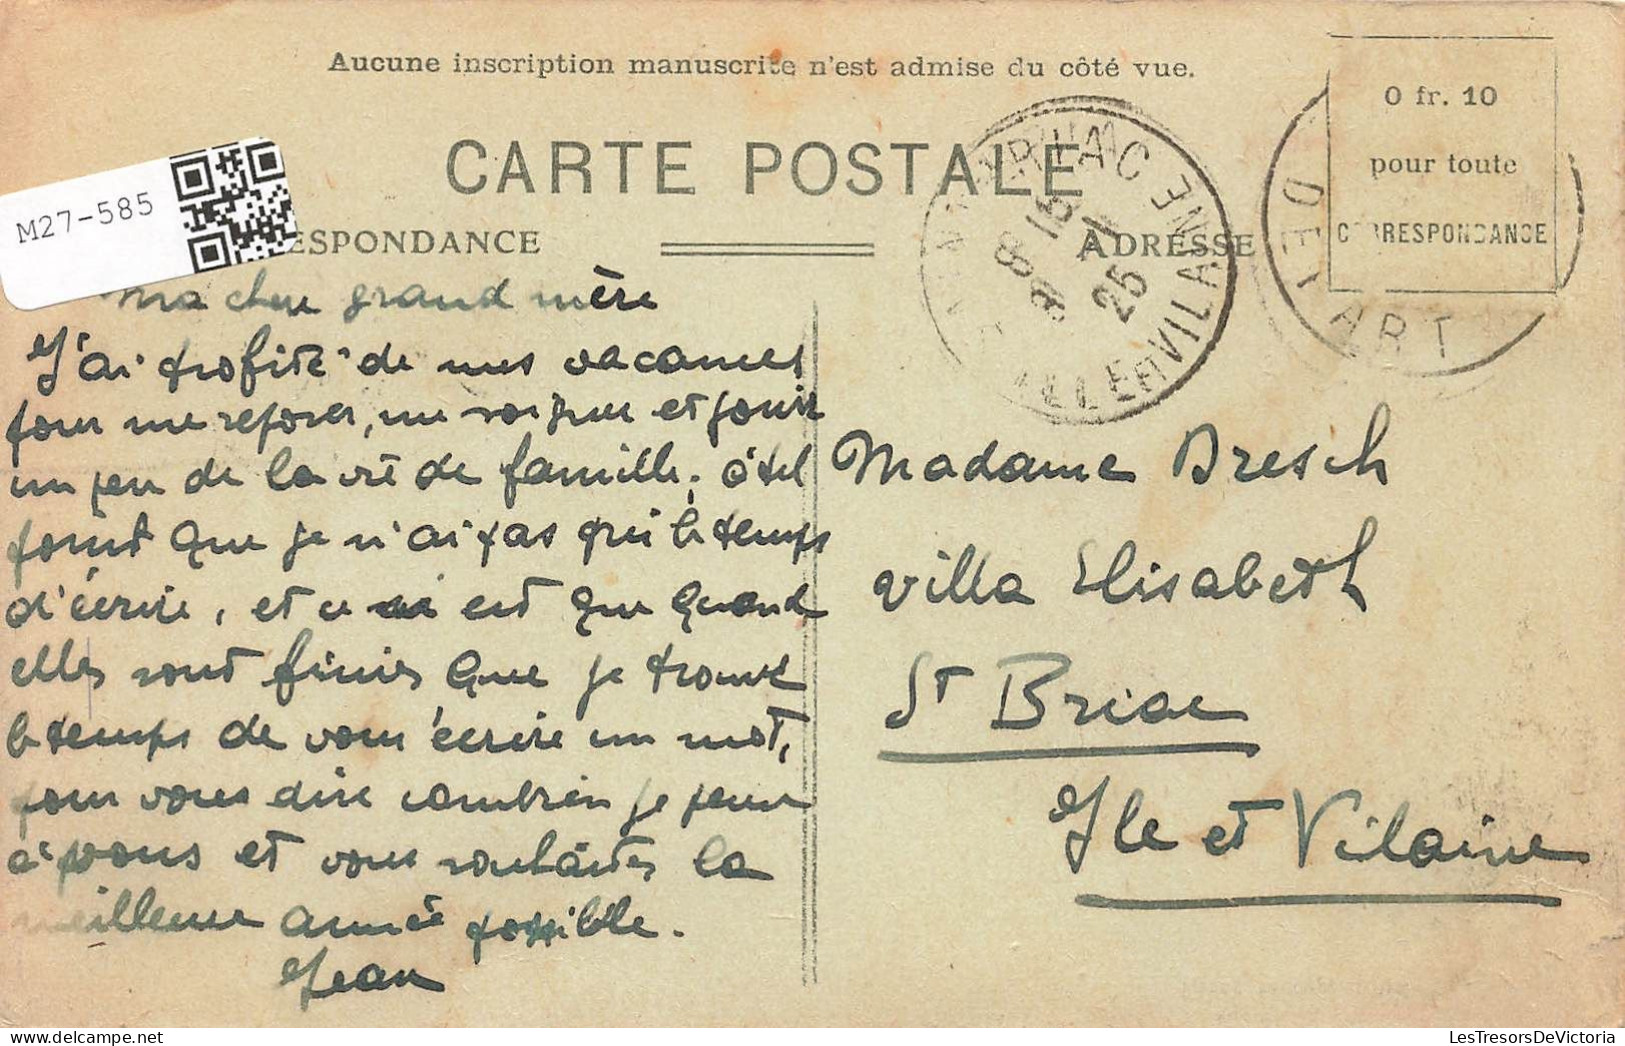 Aucune inscription manuscrite n'est admise du côté vue.
CARTE POSTALE
M27-585
ESPONDANCE
ADRESSE
0 fr. 10
pour toute
CORRESPONDANCE
BRIAC
ILLE ET VILAINE
8 9
25
DÉPART
Ma chere grand mère
J'ai profité de mes vacances
pour me reposer, me soigner et jouir
un peu de la vie de famille, à tel
point que je n'ai pas pris le temps
d'écrire, et ce est que quand
elles sont finies que je trouve
le temps de vous écrire un mot,
pour vous dire combien je pense
à vous et vous souhaiter la
meilleure année possible.
Jean
Madame Bresch
Villa Elisabeth
St Briac
Ile et Vilaine
LesTresorsDeVictoria